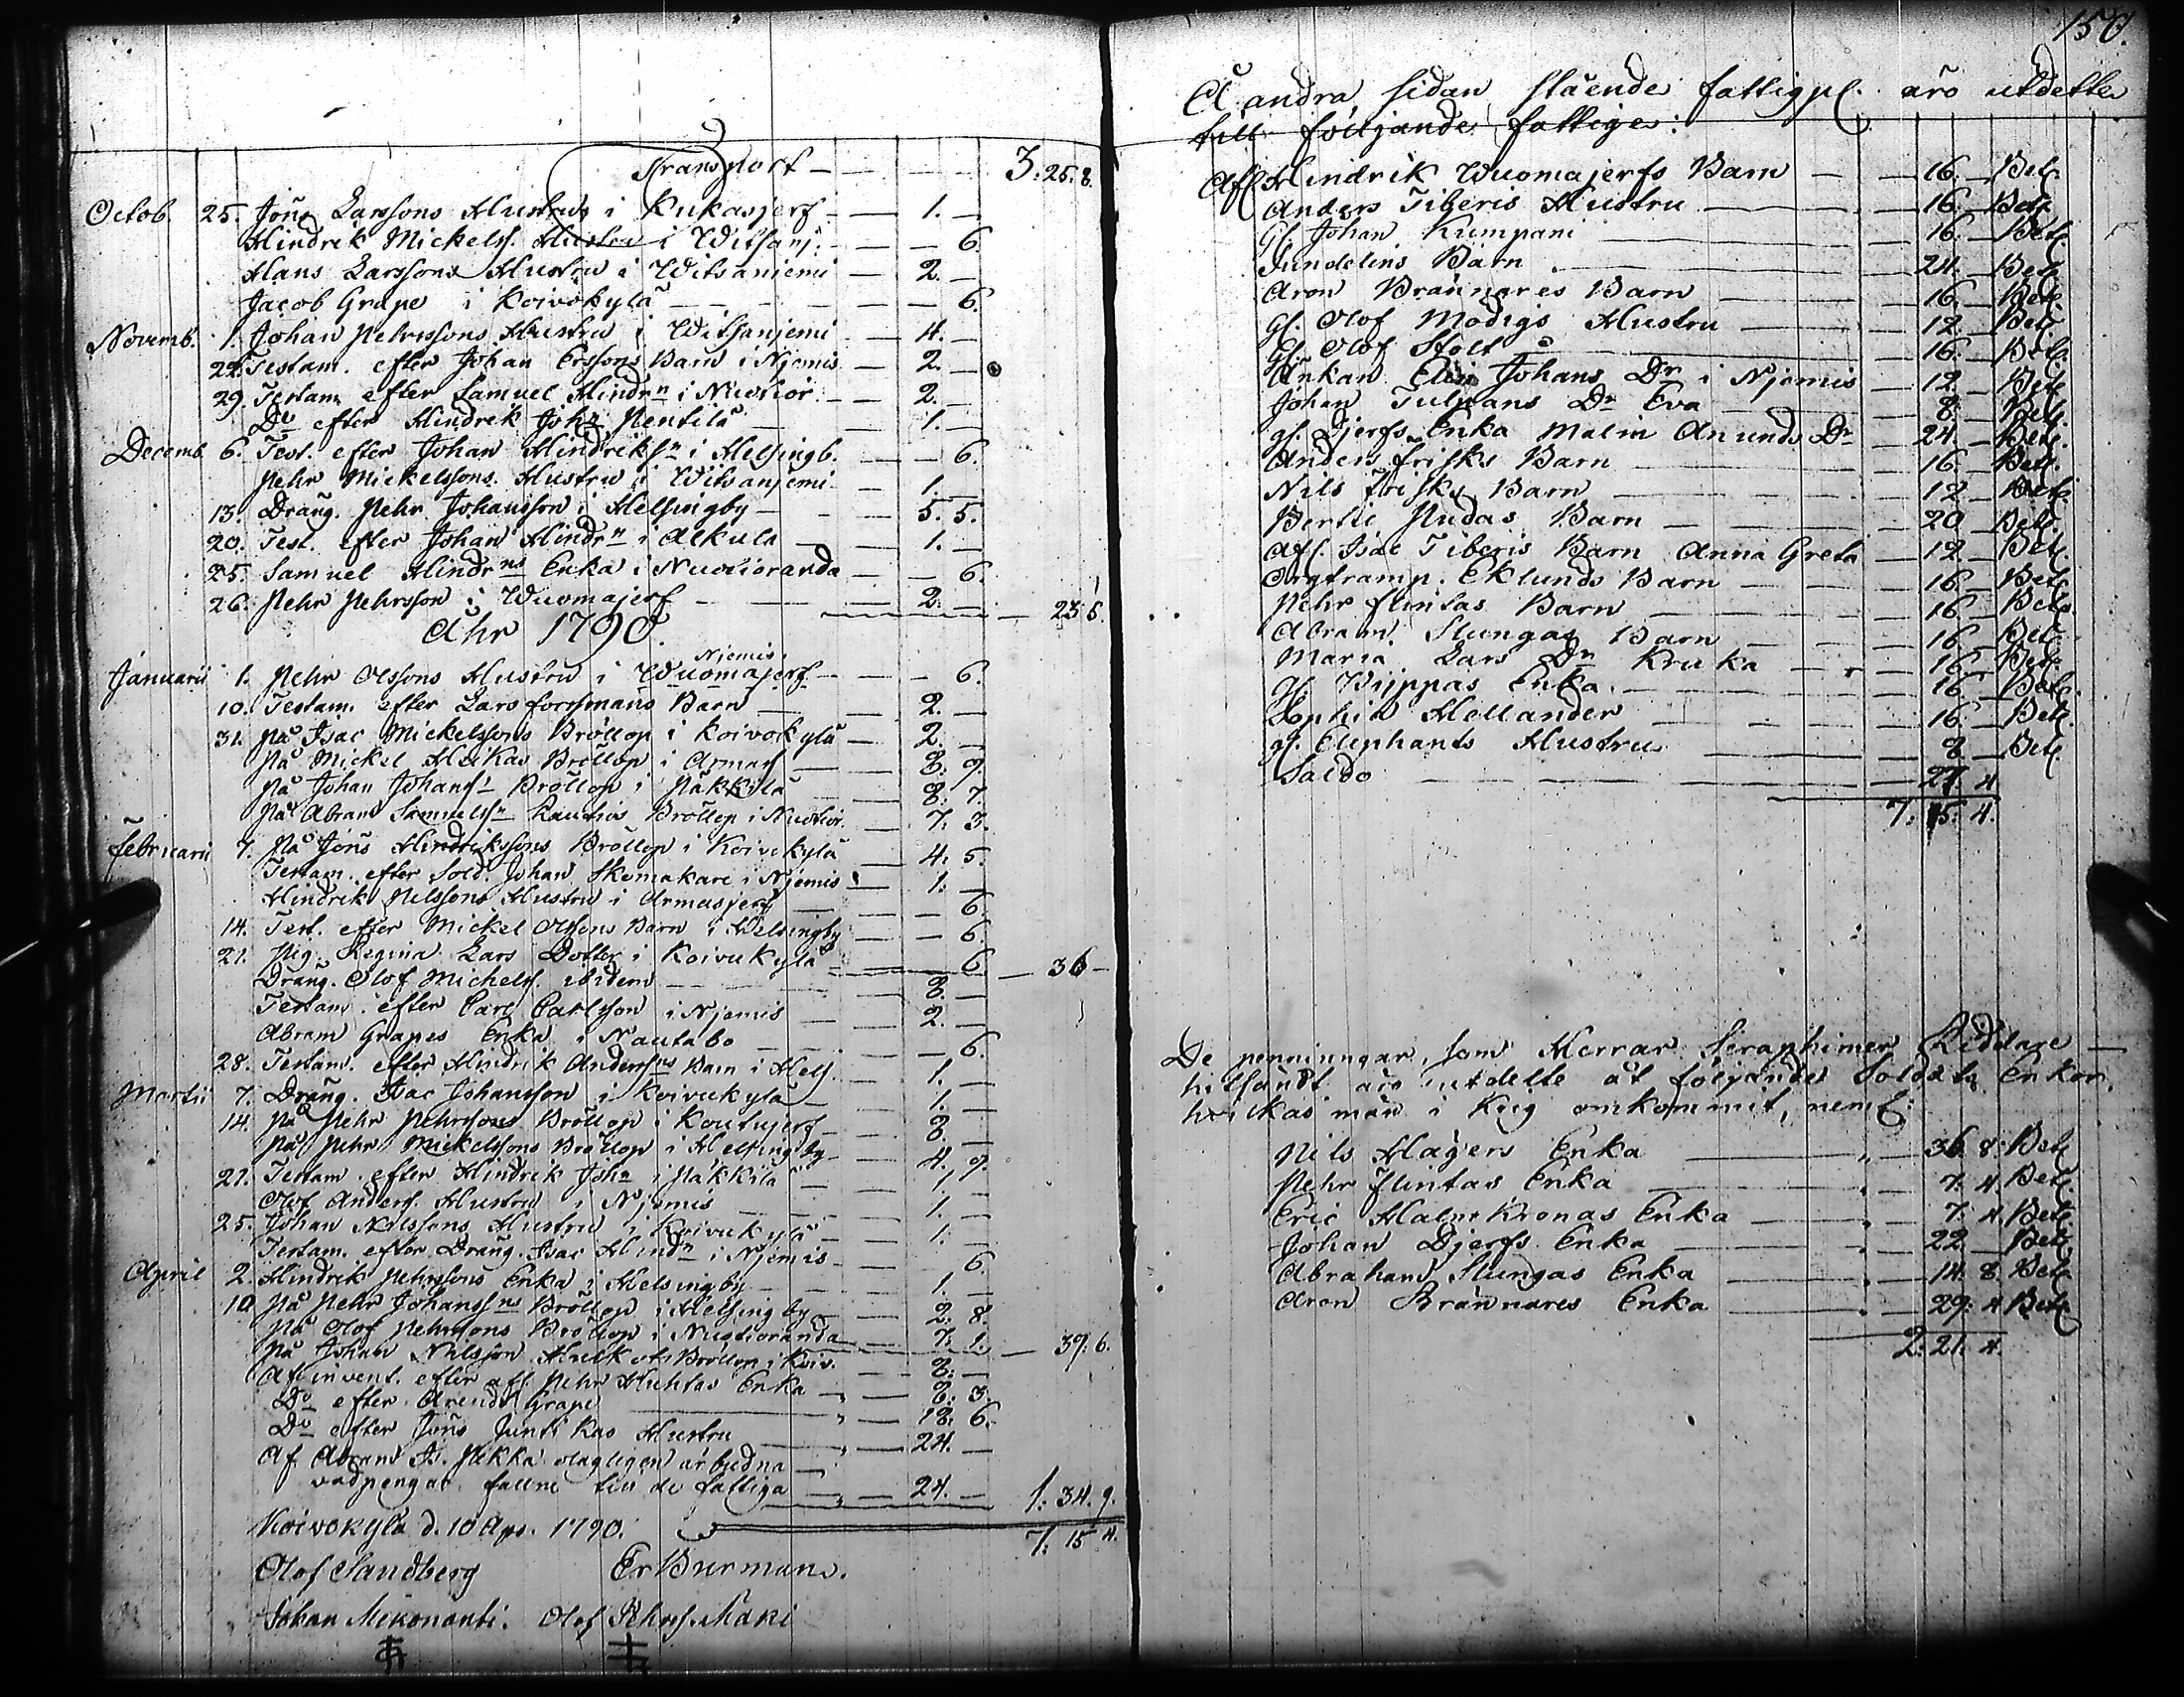 Transport - 3. 25. 8.
Octob. 25. Jöns Larssons Hustru i Kukasjerf - 1. -
Hindrik Mickelss. Hustru i Witsanj. - 6.
Hans Larssons Hustru i Witsaniemi - 2. -
Jacob Grape i Koivokylä - 6.
Novemb. 1. Johan Pehrssons Hustru i Witsanjemi - 4. -
22. Testam. efter Johan Erssons Barn i Njemis - 2. -
29. Testam. efter Samuel Hindrn i - 2. -
Do efter Hindrik Johs Pentilä - 1. -
Decemb. 6. Test. efter Johan Hindriksn i Helsingb. - 6.
Pehr Mickelssons Hustru i Witsanjemi - 1. -
13. Dräng. Pehr Johansson i Helsingby - 5. 5.
20. Test. efter Johan Hindrn i Alkula - 1. -
25. Samuel Hindrns Enka i Nuotioranda - 6.
26. Pehr Pehrsson i Wuomajerf - 2. - 23. 5.
Åhr 1790.
Njemis
Januarii 1. Pehr Olssons Hustru i Wuomajerf - 6.
10. Testam. efter Lars Forssmans Barn - 2. -
31. På Isac Mickelssons Bröllop i Koivokylä - 2. -
På Mickel Bröllop i Armas - 8. 9.
På Johan Johanss Bröllop i Päkkilä - 8. 7.
På Abram Samuelssn Rautios Bröllop i - 7. 3.
Februarii 7. På Jöns Hindrikssons Bröllop i Koivukylä - 4. 5.
Testam. efter Sold. Johan Skomakare i Njemis - 1. -
Hindrik Nilssons Hustru i Armasjerf - 6.
14. Test. efter Mickel Olssons Barn i Helsingby - 6.
21. Pig. Regina Lars Dotter i Koivukylä - 6. - 36 -
Dräng. Olof Michelss. ibidem - 8. -
Testam. efter Carl Carlsson i Njemis - 2. -
Abram Grapes Enka i Nautabo - 6.
28. Testam. efter Hindrik Anderssns Barn i Hels. - 1. -
Martii 7. Dräng. Isac Johansson i Koivukylä - 1. -
14. På Pehr Pehrssons Bröllop i - 8. -
På Pehr Mickelssons Bröllop i Helsingby - 4. 9.
21. Testam. efter Hindrik Johs i Päkkilä - 1. -
Olof Anderss. Hustru i Njemis - 1. -
25. Johan Nilssons Hustru i Koivukylä - 1. -
Testam. efter Dräng. Isac Hindn i Njemis - 6.
April 2. Hindrik Pehrssons Enka i Helsingby - 1. -
10. På Pehr Johanssns Bröllop i Helsingby - 2. 8.
På Olof Pehrssons Bröllop i Nuotioranda - 7. 1. - 39. 6.
På Johan Nilsson Bröllop i Koiv. - 8. -
Af invent. efter afl. Pehr Huhtas Enka - 8. 3.
Do efter Arendt Grape - 18. 6.
Do efter Jöns Juntikas Hustru - 24. -
Af Abram Is. Pekka olagligen
vadpengar fallne till de fattiga - 24. - 1. 34. 9.
7. 15. 4.
Koivokylä d. 10 Apr. 1790.
Olof Sandberg Er Burman.
Johan Mekonanti. Olof Pehrss. Maki
150.
Å andra sidan stående fattigp. äro utdelte
till följande fattige:
Afl. Hindrik Wuomajerfs Barn - 16. - Bet.
Anders Tiberis Hustru - 16. - Bet.
Gl. Johan Kumpani - 16. - Bet.
Sundelins Barn - 24. - Bet.
Aron Brännares Barn - 16. - Bet.
Gl. Olof Modigs Hustru - 12. - Bet.
Gl. Olof Stolt - 16. - Bet.
Änkan Johans Dr i Njemis - 12. - Bet.
Johan Tulpans Dr Eva - 8. - Bet.
gl. Djerfs Enka Malin Anunds Dr - 24. - Bet.
Anders Frisks Barn - 16. - Bet.
Nils Frisks Barn - 12. - Bet.
Bertil Pudas Barn - 20. - Bet.
Afl. Isac Tiberis Barn Anna Greta - 12. - Bet.
Orgtramp. Eklunds Barn - 16. - Bet.
Pehr Flintas Barn - 16. - Bet.
Abram Slungas Barn - 16. - Bet.
Maria Lars Dr Kruka - 16. - Bet.
gl. Wippas Enka - 16. - Bet.
Sophia Hellander - 16. - Bet.
gl. Elephants Hustru - 8. - Bet.
Saldo - 27. 4
7. 15. 4.
De penningar, som Herrar Seraphimer Riddare -
hitsändt äro utdelte åt följande Soldate Enkor,
hvilkas män i Krig omkommit, neml:
Nils Hagers Enka - 36. 8. Bet.
Pehr Flintas Enka - 7. 4. Bet.
Eric Malmkronas Enka - 7. 4. Bet.
Johan Djerfs Enka - 22. - Bet.
Abraham Slungas Enka - 14. 8. Bet.
Aron Brännares Enka - 29. 4 Bet.
2. 21. 4.